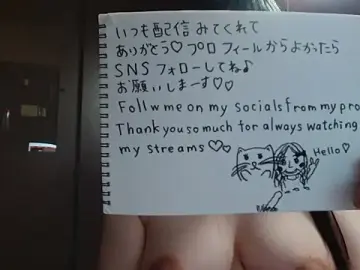 いつも配信みてくれて
ありがとう♡プロフィールからよかったら
SNSフォローしてね♪
お願いしまーす♡♡
Follw me on my socials from my pro
Thank you so much for always watching
my streams♡♡
Hello♡